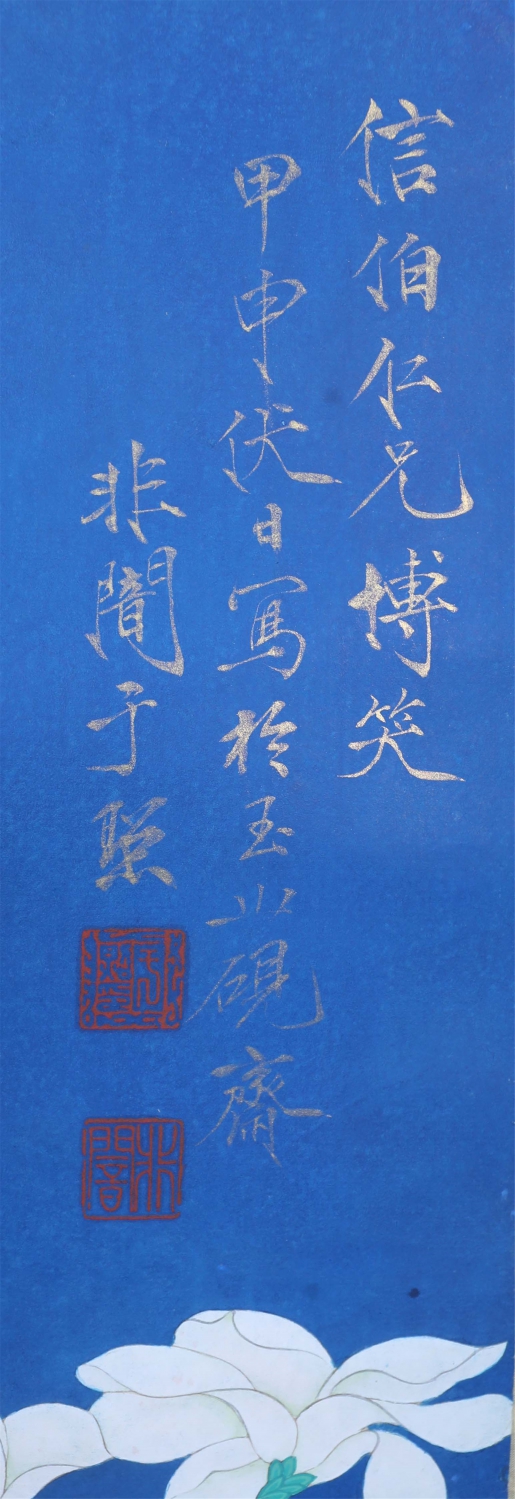 信伯仁兄博笑
甲申伏日寫於玉山硯齋
非闇于照
非闇